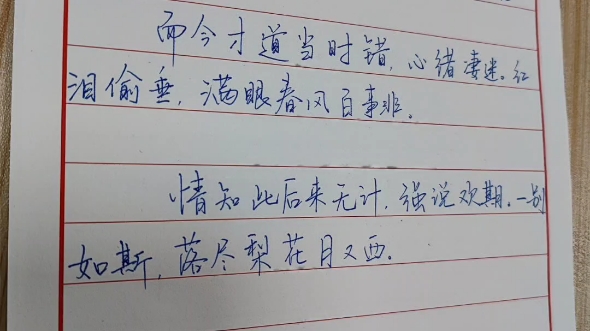 而今才道当时错,心绪凄迷。红
泪偷垂,满眼春风百事非。
情知此后来无计,强说欢期。一别
如斯,落尽梨花月又西.